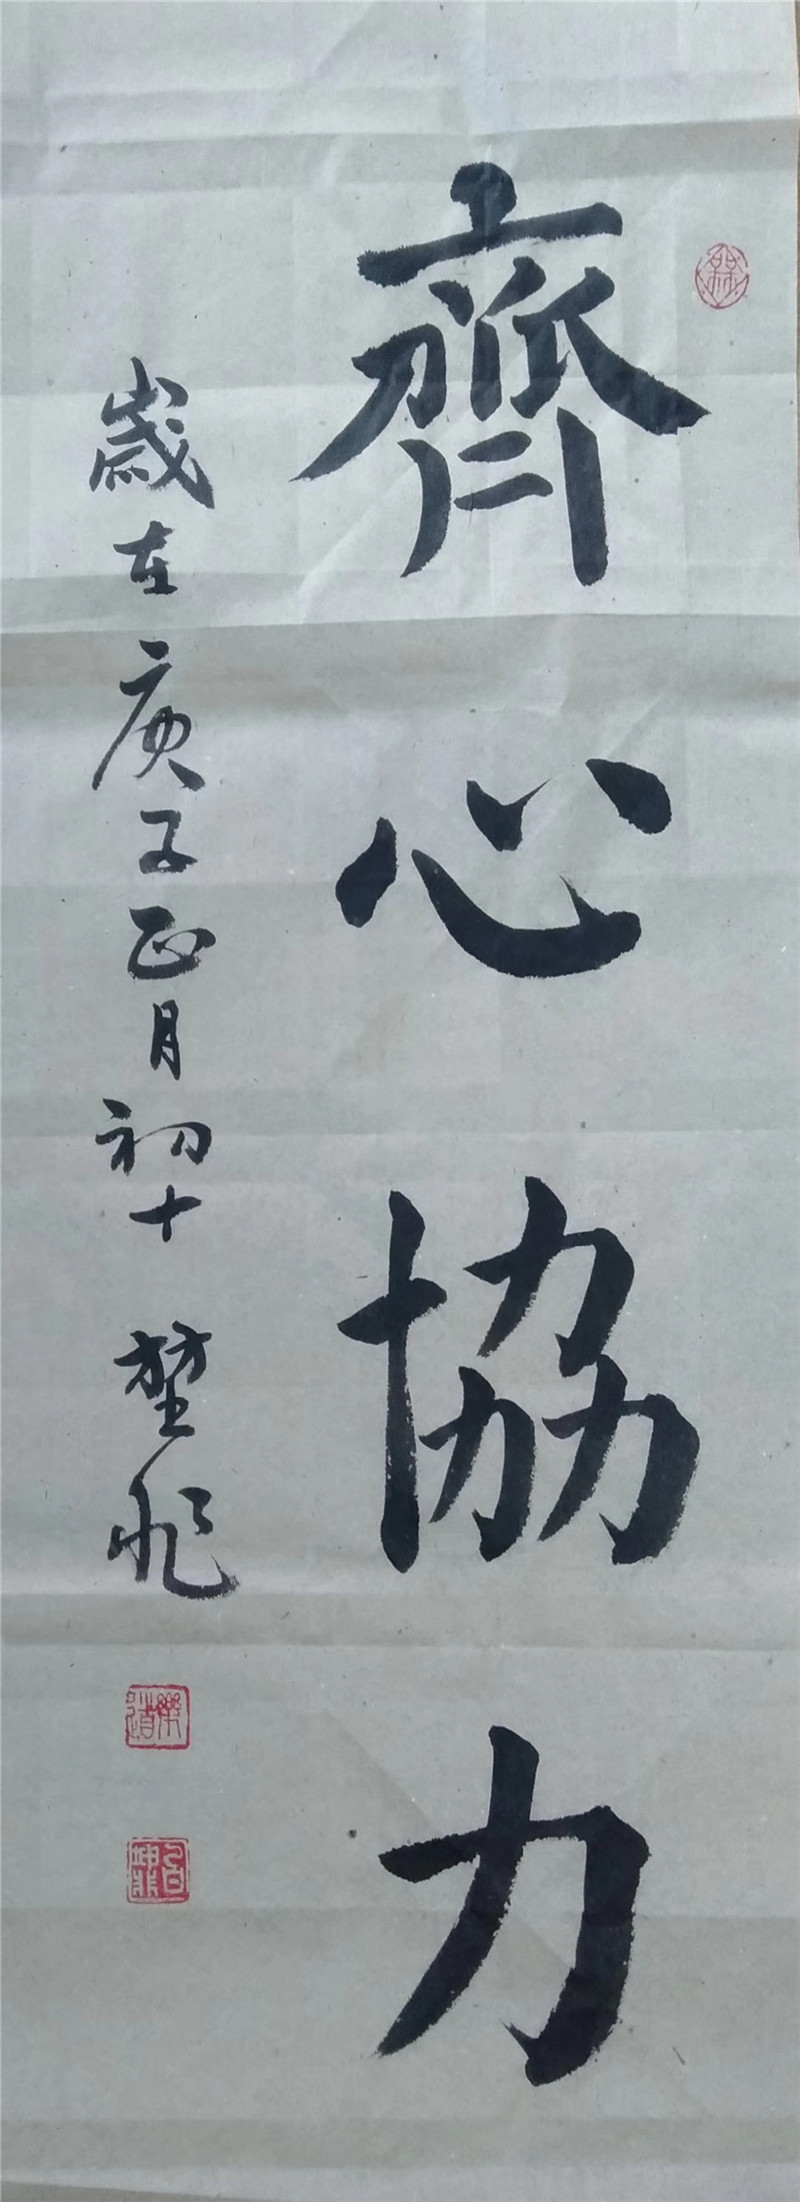 齊心協力
歲在庚子正月初十